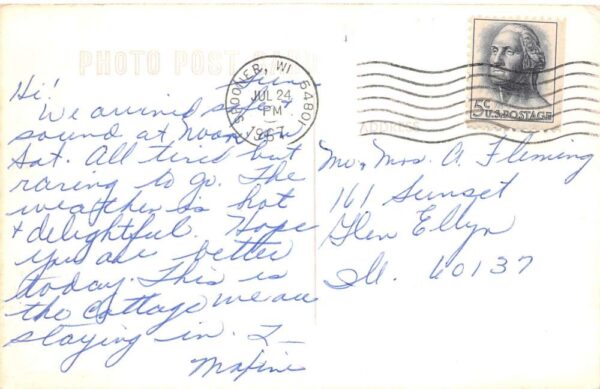 PHOTO POST
Sun
Hi!
We arrived safe +
sound at Noon on
Sat. All tired but
raring to go. The
weather is hot
+ delightful. Hope
you are better
today. This is
the cottage we are
staying in. L-
Maxine
SPOONER, WI 54801
JUL 24
PM
1967
5¢ U.S. POSTAGE
ADDRESS
Mr. Mrs. A. Fleming
161 Sunset
Glen Ellyn
Ill. 60137